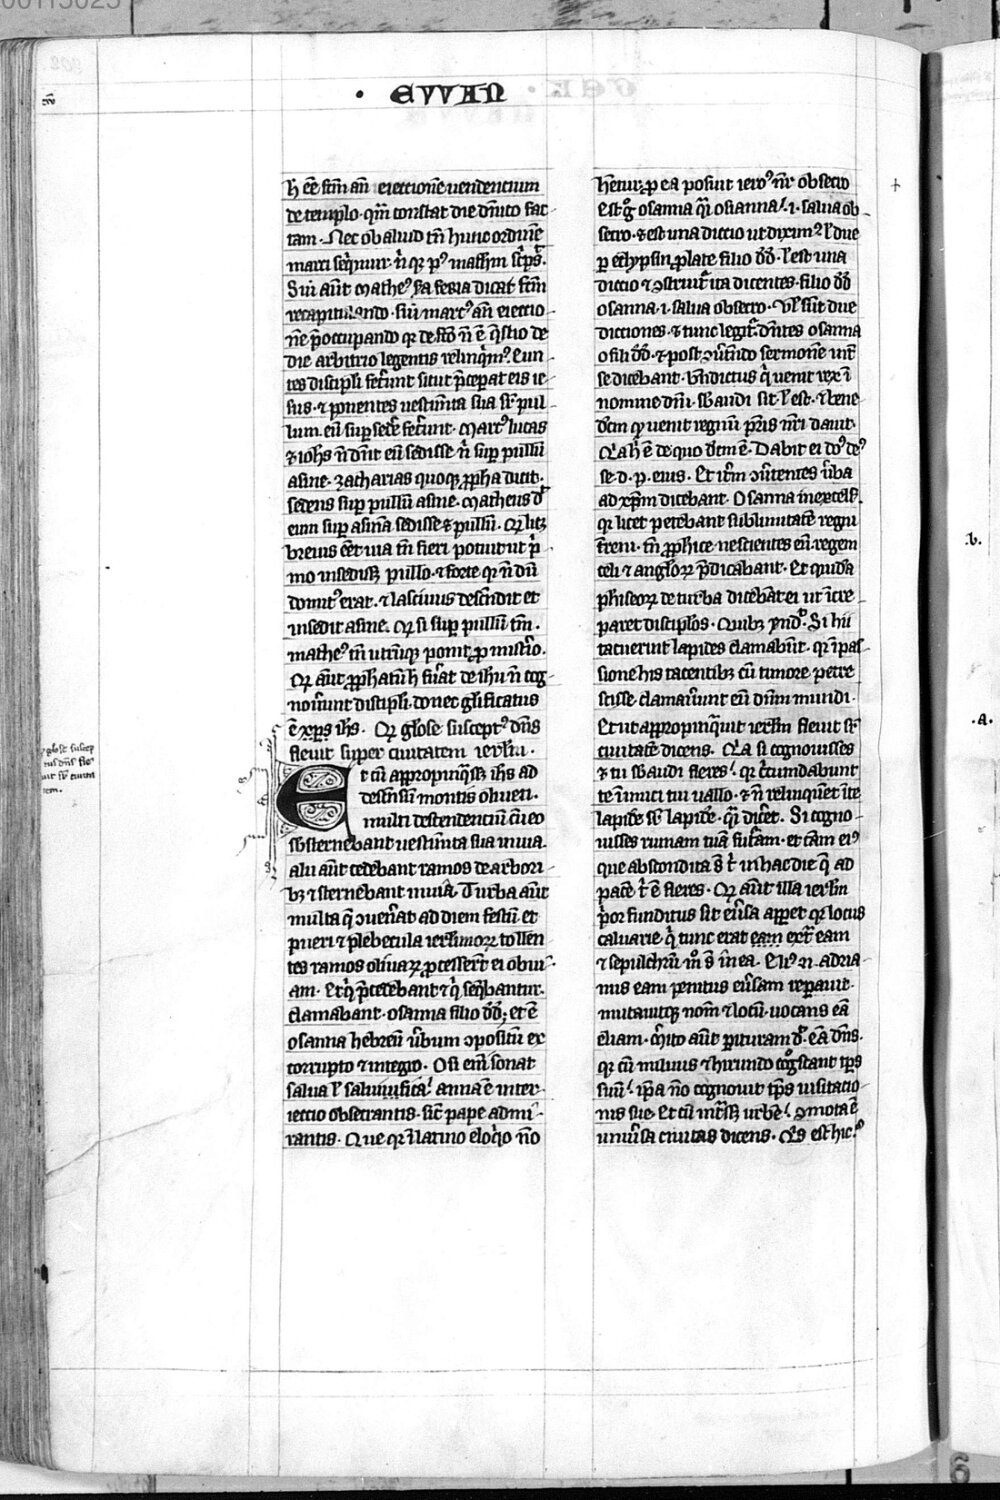 · EWAN
h eē fc̄m an̄ eiectionē uendentium
de templo · qm̄ constat die dn̄ico fac
tam · Nec ob aliud tn̄ hunc ordinē
marci seq̄mur · n̄ qꝛ p9 matheū sc̄ps̄ ·
Siū aūt mathe9 dicat fc̄m
recapitulando · siū marc9 an̄ eiectio
nē p̄occupando qꝛ n̄ ē q̄stio de
die arbitrio legentis relinqm9 · Eun
tes discipl̄i fec̄unt sicut p̄ceperat eis ie
sus · ⁊ ponentes uestim̄ta sua sr̄ pul
lum · eū sup sedē fec̄unt · Marc9 lucas
⁊ ioh̄s n̄ dn̄t eū sedisse n̄ sup pullū
asine · Zacharias quoqꝫ ꝓpha ducit ·
sedens sup pullū asine · Matheus d̄
eum sup asinā sedisse ⁊ pullū · Qꝛ licꝫ
breuis eēt uia tn̄ fieri potuit ut p̄
mo insedisꝫ pullo · ⁊ forte qꝛ n̄ dū
domit9 erat · ⁊ lasciuus descēdit et
insedit asine · Qꝛ si sup pullū tm̄ ·
mathe9 tn̄ utrūqꝫ ponit ꝓ mist̄io ·
Qꝛ aūt ꝓphatū h̄ fūat de ihū n̄ cog
nouūnt discipl̄i · donec gl̄ificatus
ē xp̄s ih̄s · Qꝛ glose suscept9 dn̄s
fleuit super ciuitatem ierl̄m ·
Et cū appropinq̄sꝫ ih̄s ad
descēsū montis oliueti ·
multi descendentiū cū eo
sb̄sternebant uestim̄ta sua in uia
alii aūt cedebant ramos de arbori
bꝫ ⁊ sternebant in uia · Turba aūt
multa q̄ ɔuen̄at ad diem festū et
pueri ⁊ plebecula ierl̄imoꝝ tollen
tes ramos oliuaꝝ ꝓcesser̄t ei obui
am · Et q̄ p̄cedebant ⁊ q̄ seq̄bantur ·
clamabant · osanna filio dd̄ · et ē
osanna hebreū ūbum ɔpositū ex
corrupto ⁊ integro · Osi eni sonat
salua l̄ saluifica · anna ē inter
iectio obsecrantis · sic̄ pape admi
rantis · Que qꝛ ī latino eloq̄io n̄o
hētur · ꝓ ea posuit iero9 nr̄ obsecro
Est g° osanna q̄i osianna · i · salua ob
secro · ⁊ est una dictio ut dixim9 · l̄ due
p eclypsin ꝓlate filio dd̄ · l̄ est una
dictio ⁊ ɔstruit̄ ita dicentes · filio dd̄
osanna · i · salua obsecro · Vl̄ sūt due
dictiones · ⁊ tunc legit̄ · dn̄tes osanna
o fili dd̄ · ⁊ post ɔūtendo sermonē int̄
se dicebant · Bn̄dictus q̄ uenit rex ī
nomine dn̄i · sb̄audi sit l̄ est · ⁊ bene
dc̄m qd̄ uenit regnū pr̄is nr̄i dauit ·
Qꝛ h̄ ē de quo dc̄m ē · Dabit ei do9 de9
se · d · p · eius · Et itm̄ ɔūtentes ūba
ad xp̄m dicebant · Osanna in excels̄ ·
qꝛ licet petebant sublimitatē regni
tr̄eni · tn̄ ꝓphice nescientes eū regem
celi ⁊ angl̄oꝝ p̄dicabant · Et quidā
phīseoꝝ de turba dicebāt ei ut īcre
paret discipl̄os · Quibꝫ r̄nd̄ · Si hii
tacuerint lapides clamabūt · qꝛ ī pas
sione his tacentibꝫ cū timore petre
scisse · clamauūnt eū dn̄m mundi ·
Et ut appropinquit ierl̄m fleuit sr̄
ciuitatē dicens · Qꝛ si cognouisses
⁊ tu sb̄audi fleres · qꝛ c̄cumdabunt
te īimici tui uallo · ⁊ n̄ relinquēt ī te
lapidē sr̄ lapidē · q̄i dic̄et · Si cogno
uisses ruinam tuā fut̄am · et cām ei9
que abscondita s̄ t̄ · in hac die q̄ ad
pacē t̄ ē fleres · Qꝛ aūt illa ierl̄m
p̄or funditus sit eūsa apꝑet qꝛ locus
caluarie q̄ tunc erat eam ext̄ eam
⁊ sepulchrū m° s̄ in ea · adria
nus eam penitus eūsam reparauit ·
mutauitqꝫ nom̄ ⁊ locū · uocans eā
eliam · m̄ito aūt ꝑituram d̄ · eā dn̄s ·
qꝛ cū miluus ⁊ hirundo coḡscant tp̄s
suū · ip̄a n̄o cognouit tp̄s uisitatio
nis sue · Et cū int̄sꝫ urbē · ɔmota ē
uniūsa ciuitas dicens · Qs̄ est hic ·
glose suscep
tus dn̄s fle
uit sr̄ ciuita
tem ·
.b.
.a.
6